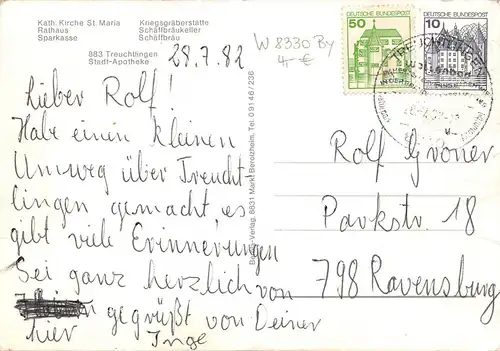 Kath. Kirche St. Maria
Rathaus
Sparkasse
Kriegsgräberstätte
Schäffbräukeller
Schäffbräu
883 Treuchtlingen
Stadt-Apotheke
28.7.82
W 8330 By
4 €
50 DEUTSCHE BUNDESPOST
10 DEUTSCHE BUNDESPOST
TREUCHTLINGEN
Lieber Rolf!
Habe einen kleinen
Umweg über Treucht-
lingen gemacht es
gibt viele Erinnerungen
Sei ganz herzlich von
gegrüßt von Deiner
hier Inge
Verlag, 8831 Markt Berolzheim, Tel. 0 91 46 / 236
Rolf Groner
Parkstr. 18
798 Ravensburg